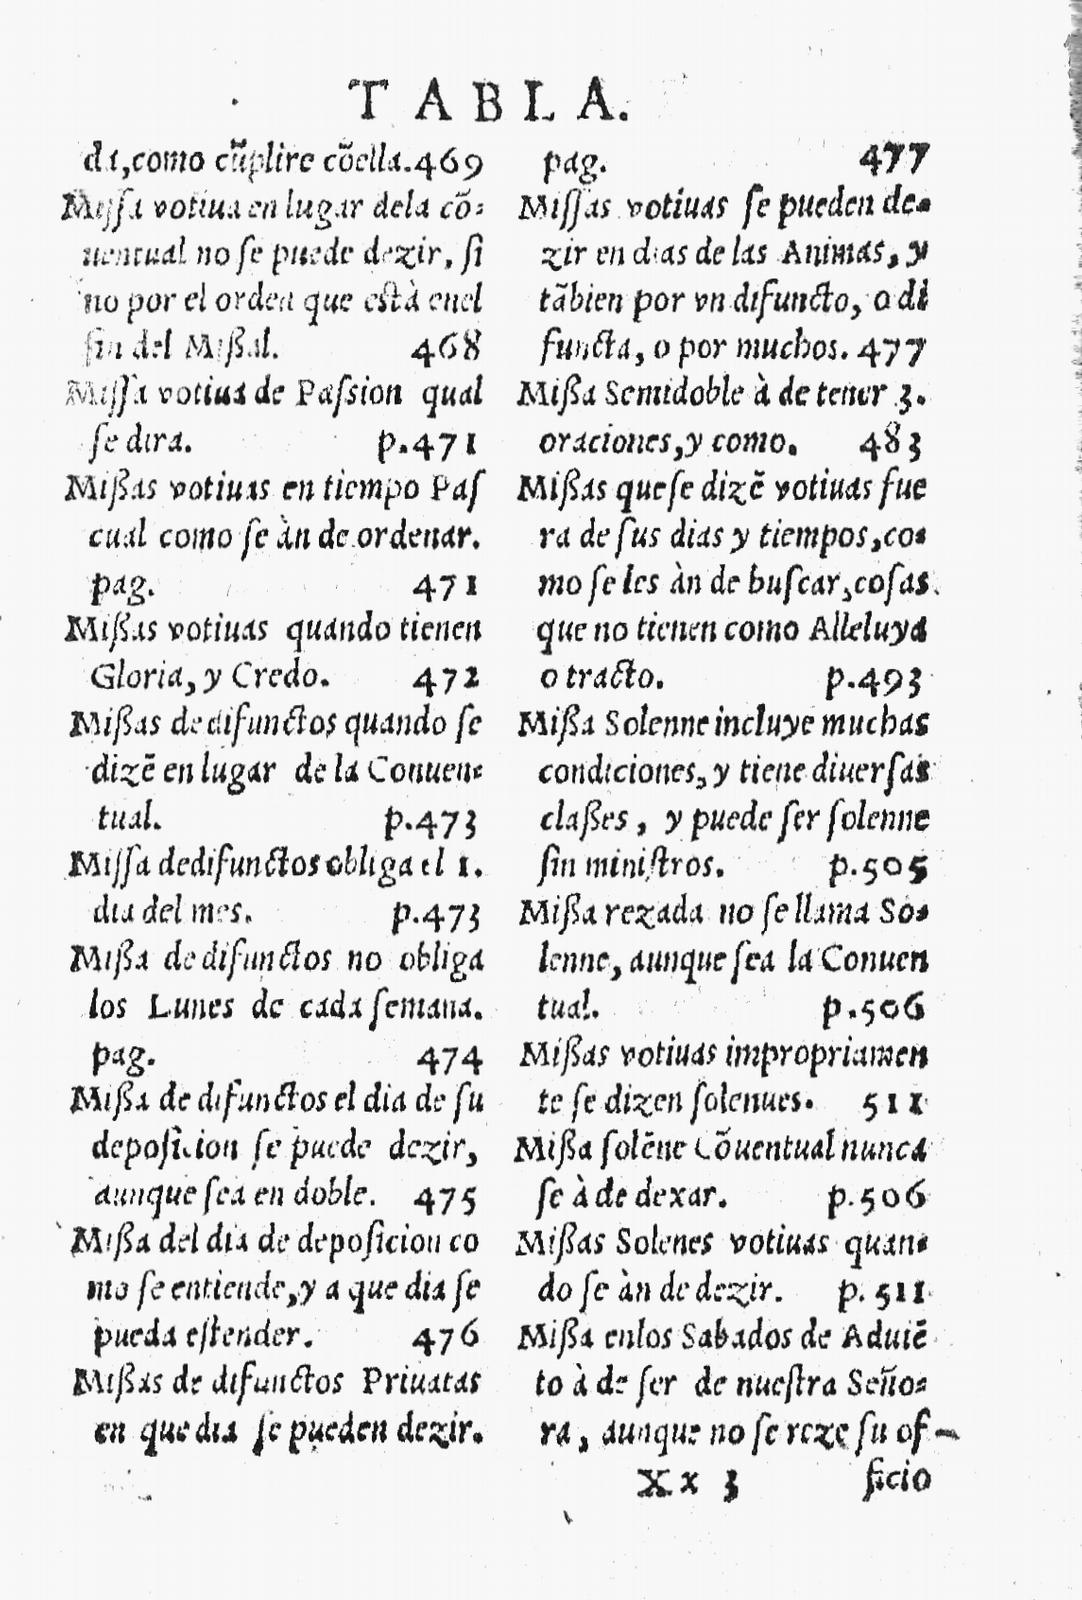 TABLA.
da, como cũplire cõella. 469
Missa votiua en lugar dela cõ-
uentual no se puede dezir, si
no por el orden que està enel
fin del Mißal. 468
Missa votiua de Passion qual
se dira. p.471
Mißas votiuas en tiempo Pas
cual como se àn de ordenar.
pag. 471
Mißas votiuas quando tienen
Gloria, y Credo. 472
Mißas de difunctos quando se
dizẽ en lugar de la Conuen-
tual. p.473
Missa dedifunctos obliga el 1.
dia del mes. p.473
Mißa de difunctos no obliga
los Lunes de cada semana.
pag. 474
Mißa de difunctos el dia de su
deposicion se puede dezir,
aunque sea en doble. 475
Mißa del dia de deposicion co
mo se entiende, y a que dia se
pueda estender. 476
Mißas de difunctos Priuatas
en que dia se pueden dezir.
pag. 477
Missas votiuas se pueden de-
zir en dias de las Animas, y
tãbien por vn difuncto, o di
functa, o por muchos. 477
Mißa Semidoble à de tener 3.
oraciones, y como. 483
Mißas que se dizẽ votiuas fue
ra de sus dias y tiempos, co-
mo se les àn de buscar, cosas
que no tienen como Alleluya
o tracto. p.493
Mißa Solenne incluye muchas
condiciones, y tiene diuersas
claßes, y puede ser solenne
sin ministros. p.505
Mißa rezada no se llama So-
lenne, aunque sea la Conuen
tual. p.506
Mißas votiuas impropriamen
te se dizen solenues. 511
Mißa solẽne Cõuentual nunca
se à de dexar. p.506
Mißas Solenes votiuas quan-
do se àn de dezir. p. 511
Mißa enlos Sabados de Aduiẽ
to à de ser de nuestra Seño-
ra, aunque no se reze su of-
Xx 3 ficio